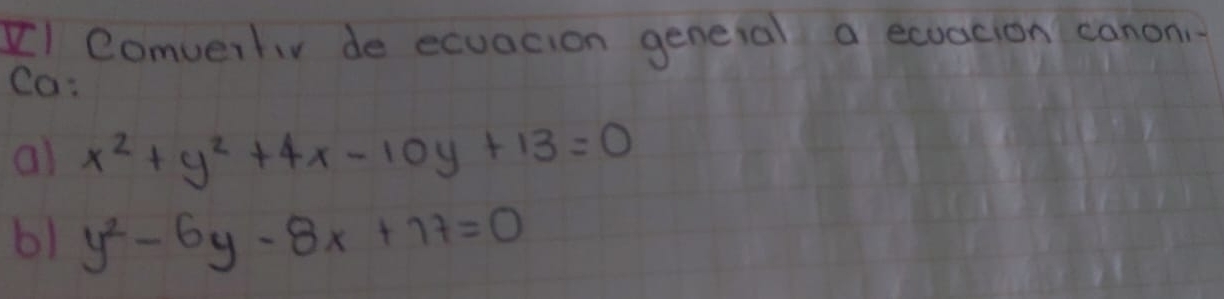 VI) Comvertir de ecuacion general a ecuacion canoni-
ca:
a) x² + y² + 4x - 10y + 13 = 0
b) y² - 6y - 8x + 17 = 0